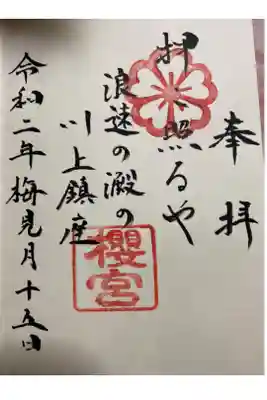 奉拝
押し照るや
浪速の澱の
川上鎮座
櫻宮
令和二年梅見月十五日